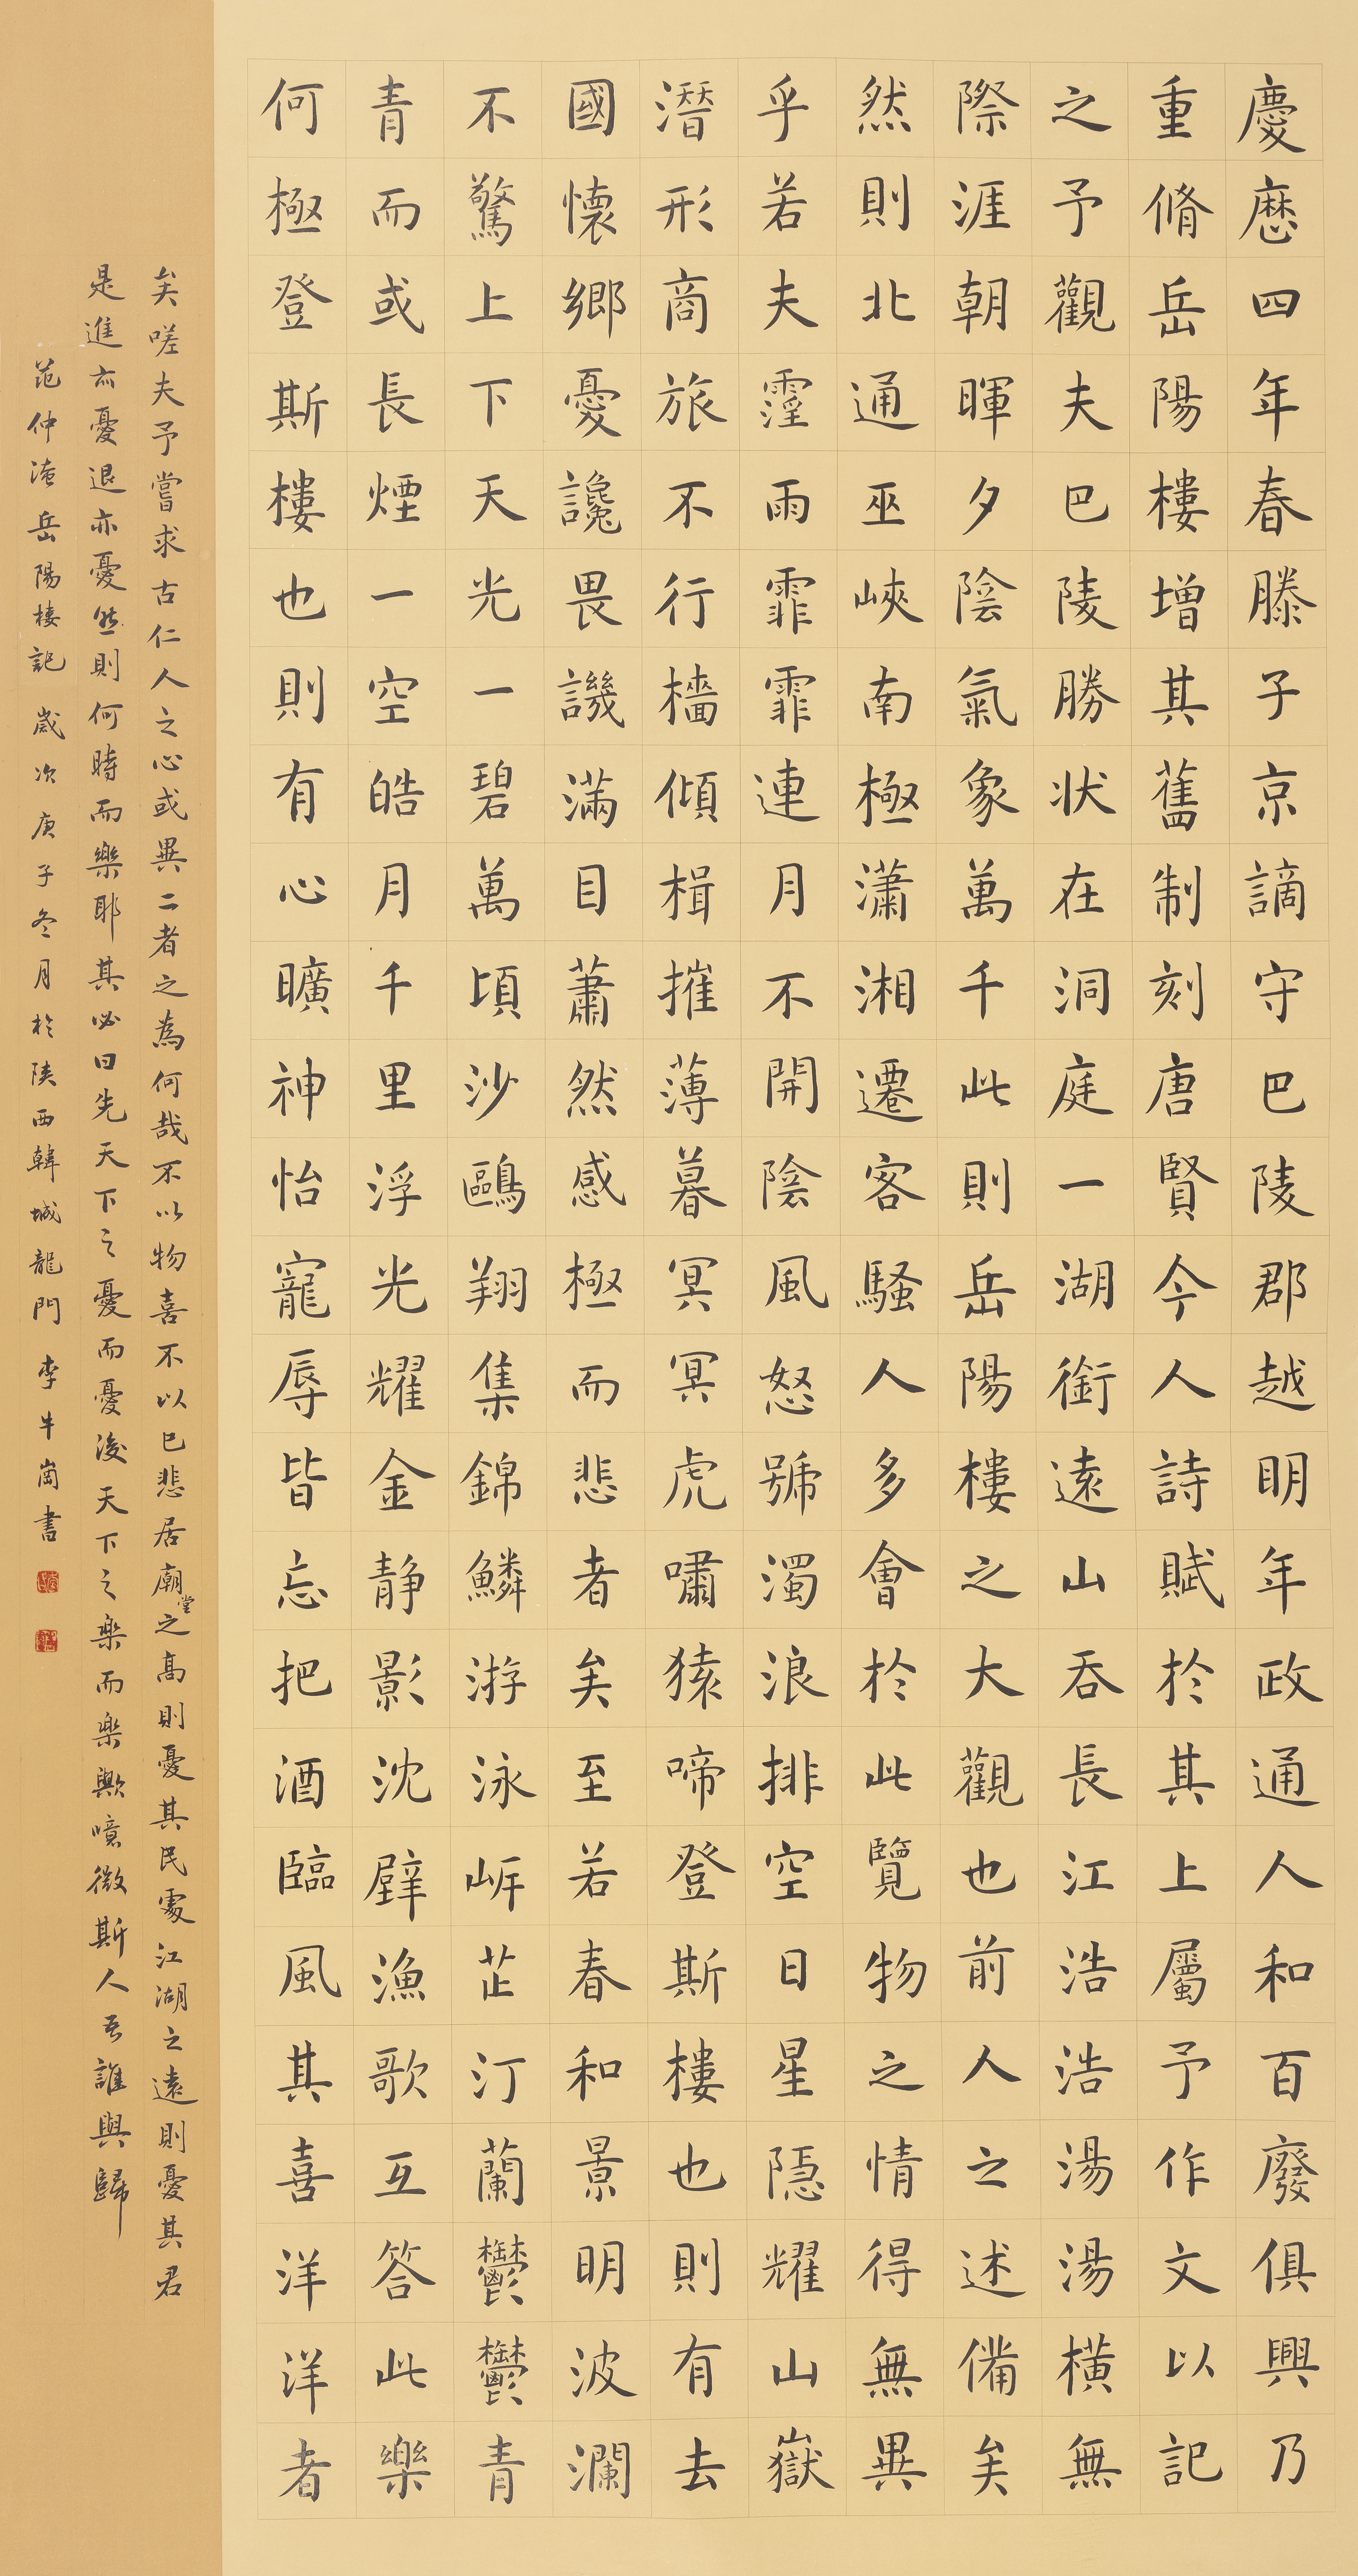 慶歷四年春滕子京謫守巴陵郡越明年政通人和百廢俱興乃
重脩岳陽樓增其舊制刻唐賢今人詩賦於其上屬予作文以記
之予觀夫巴陵勝狀在洞庭一湖銜遠山吞長江浩浩湯湯橫無
際涯朝暉夕陰氣象萬千此則岳陽樓之大觀也前人之述備矣
然則北通巫峽南極瀟湘遷客騷人多會於此覽物之情得無異
乎若夫霪雨霏霏連月不開陰風怒號濁浪排空日星隱耀山嶽
潛形商旅不行檣傾楫摧薄暮冥冥虎嘯猿啼登斯樓也則有去
國懷鄉憂讒畏譏滿目蕭然感極而悲者矣至若春和景明波瀾
不驚上下天光一碧萬頃沙鷗翔集錦鱗游泳岸芷汀蘭鬱鬱青
青而或長煙一空皓月千里浮光耀金静影沈璧漁歌互答此樂
何極登斯樓也則有心曠神怡寵辱皆忘把酒臨風其喜洋洋者
矣嗟夫予嘗求古仁人之心或異二者之為何哉不以物喜不以己悲居廟堂之高則憂其民處江湖之遠則憂其君
是進亦憂退亦憂然則何時而樂耶其必曰先天下之憂而憂後天下之樂而樂歟噫微斯人吾誰與歸
范仲淹岳陽樓記 歲次庚子冬月於陝西韓城龍門 李牛崗書